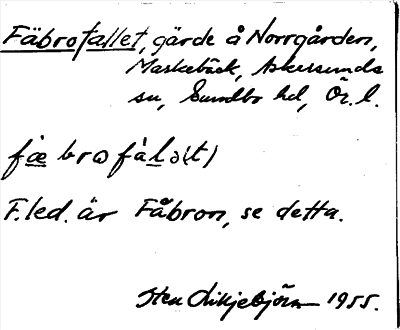 Fäbrofallet, gärde å Norrgården,
Markebäck, Askersunds
sn, Sundbo hd, Ör. l.
fæbrofàlə(t)
F.led. är Fåbron, se detta.
Sten Liljebjörn 1955.